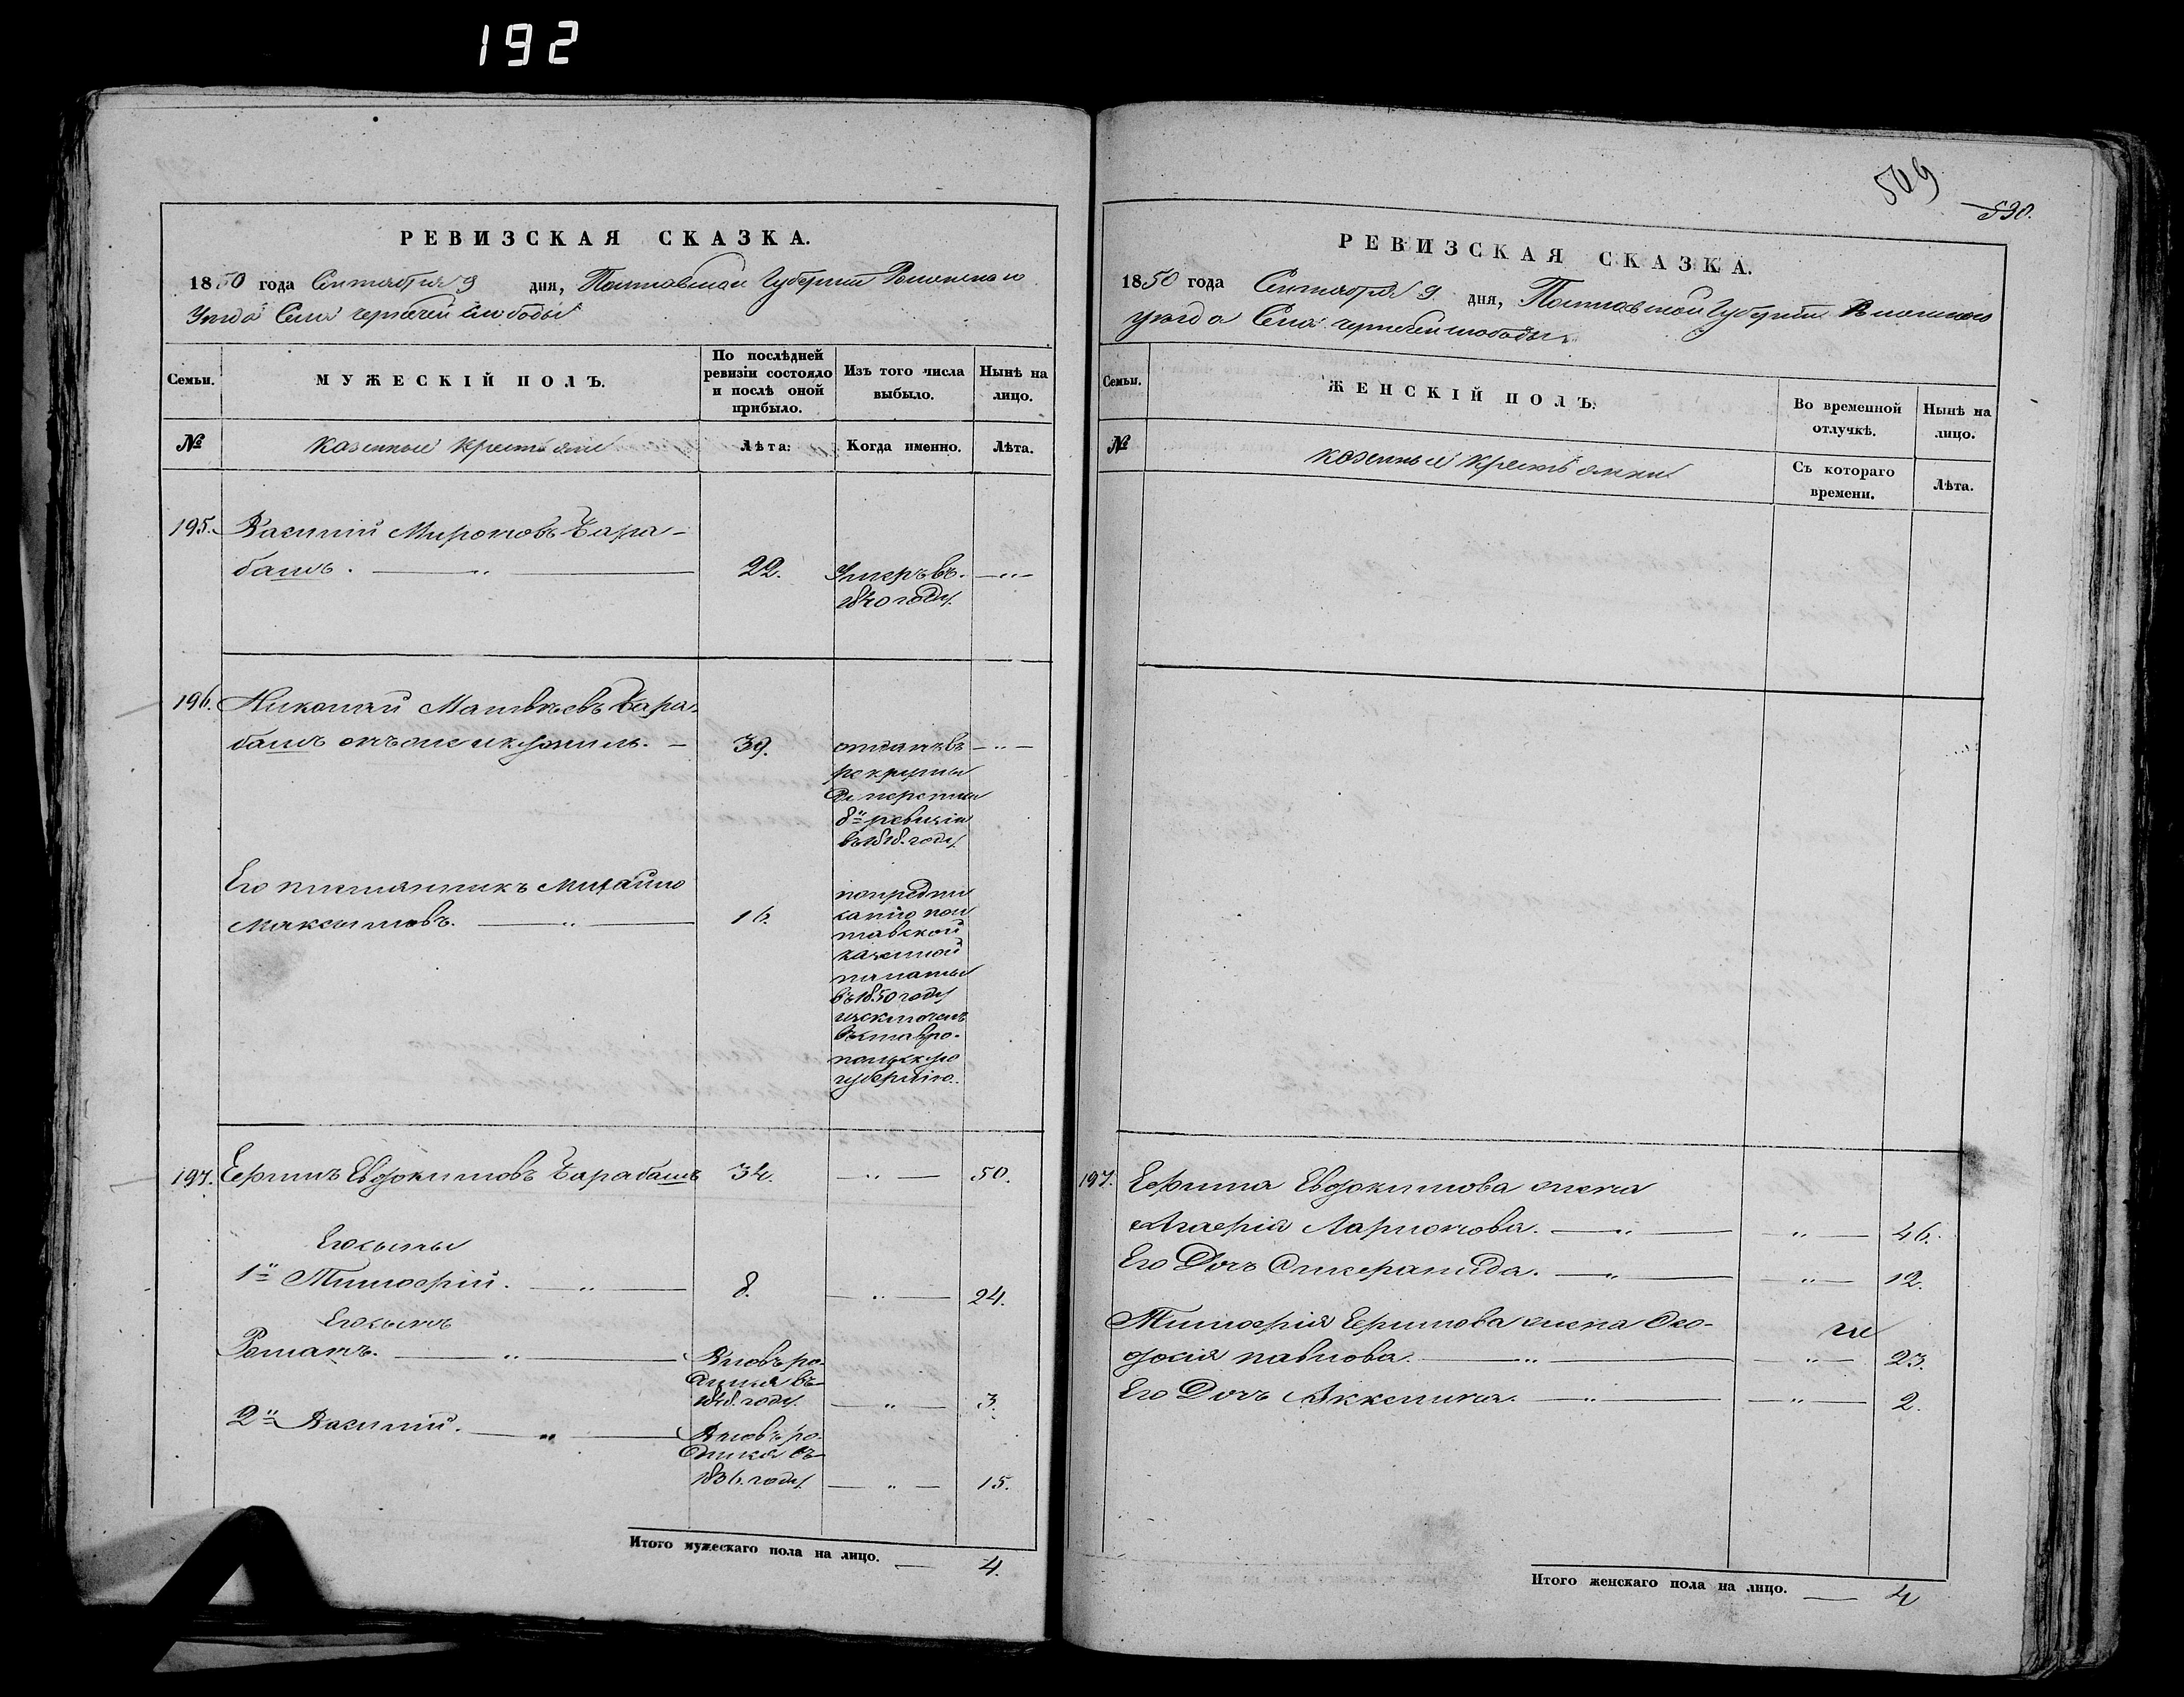 192
РЕВИЗСКАЯ СКАЗКА.
1850 года Сентября 9 дня, Полтавской Губернии Роменскаго
Уезда Села чернечей слободы
Семьи.
МУЖЕСКІЙ ПОЛЪ.
По послѣдней ревизіи состояло и послѣ оной прибыло.
Изъ того числа выбыло.
Нынѣ на лицо.
№
казенные крестьяне
Лѣта:
Когда именно.
Лѣта.
195. Василий Мироновъ Бара-
башъ. 22. Умеръ въ
1840 году.
196. Николай Матвѣевъ Бара-
башъ 39. отданъ въ
рекруты
до переписи
8й ревизіи
въ 1818. году
Его племянникъ Михайло
Максимовъ. 16.
по предпи
санію пол
тавской
казенной
палаты
въ 1850 году
изключенъ
въ ставро-
польскую
губернію.
197. Ефимъ Евдокимовъ Барабашъ 34. 50.
Его сыны
1й Тимофій. 8. 24.
Его сынъ
Романъ. Вновь ро-
дился въ
1848. году. 3.
2й Василий. Вновь ро-
дился въ
1836. году 15.
Итого мужескаго пола на лицо. 4.
569
530.
РЕВИЗСКАЯ СКАЗКА.
1850 года Сентября 9 дня, Полтавской Губерніи Роменскаго
уезда Села чернечей слободы
Семьи.
ЖЕНСКІЙ ПОЛЪ.
Во временной отлучкѣ.
Нынѣ на лицо.
№
казенные крестьянки
Съ котораго времени.
Лѣта.
197. Ефима Евдокимова жена
Агафія Ларионова. 46.
Его Дочь 12.
Тимофія Ефимова жена Фео-
досія павлова. 23.
Его Дочь Аккелина. 2.
Итого женскаго пола на лицо. 4